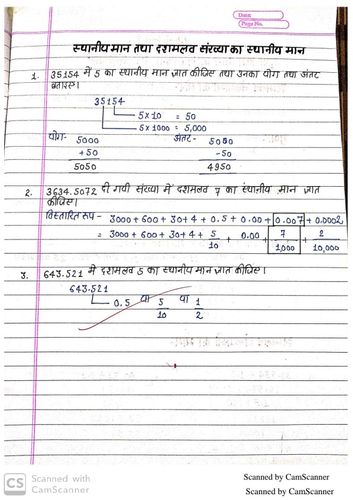 Date
Page No.
स्थानीय मान तथा दशमलव संख्या का स्थानीय मान
1. 35154 में 5 का स्थानीय मान ज्ञात कीजिए तथा उनका योग तथा अंतर
बताइए।
35154
5 x 10 = 50
5 x 1000 = 5,000
योग- 5000 अंतर- 5000
+ 50 - 50
5050 4950
2. 3634.5072 दी गयी संख्या में दशमलव 7 का स्थानीय मान ज्ञात
कीजिए।
विस्तारित रूप - 3000 + 600 + 30 + 4 + 0.5 + 0.00 + 0.007 + 0.0002
= 3000 + 600 + 30 + 4 + 5/10 + 0.00 + 7/1,000 + 2/10,000
3. 643.521 में दशमलव 5 का स्थानीय मान ज्ञात कीजिए।
643.521
0.5 या 5/10 या 1/2
CS Scanned with
CamScanner
Scanned by CamScanner
Scanned by CamScanner